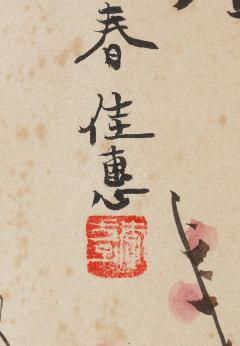 春佳惠